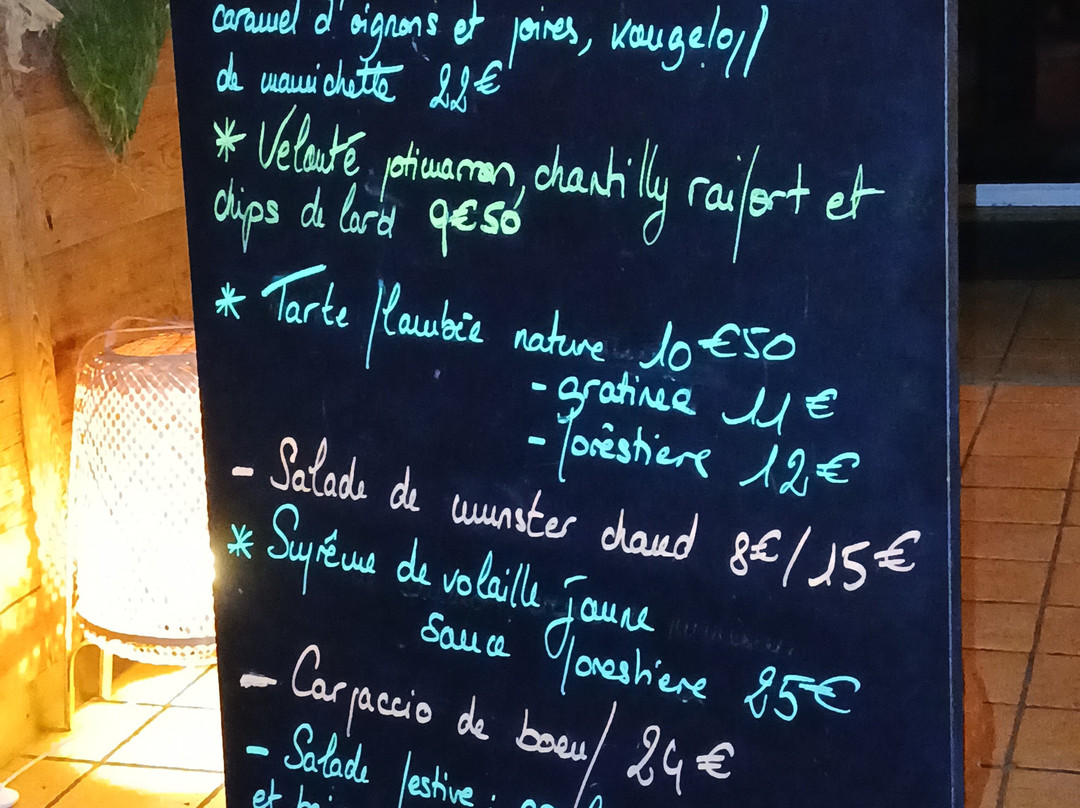 caramel d'oignons et poires, kougeloff
de mamichette 22€
* Velouté potimarron, chantilly raifort et
chips de lard 9€50
* Tarte flambée nature 10€50
- gratinée 11€
- forêstière 12€
- Salade de munster chaud 8€/15€
* Suprême de volaille jaune
sauce forestière 25€
- Carpaccio de boeuf 24€
- Salade festive :
et